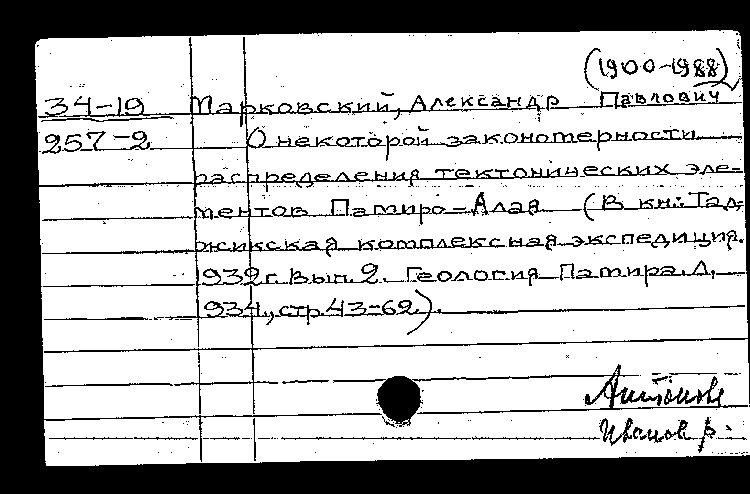 (1900-1988)
34-19 Марковский, Александр Павлович
257-2 О некоторой закономерности
распределения тектонических эле-
ментов Памиро-Алая (В кн.: Тад-
жикская комплексная экспедиция.
1932 г. Вып. 2. Геология Памира. Л.,
1934., стр. 43-62).
Иванов р.